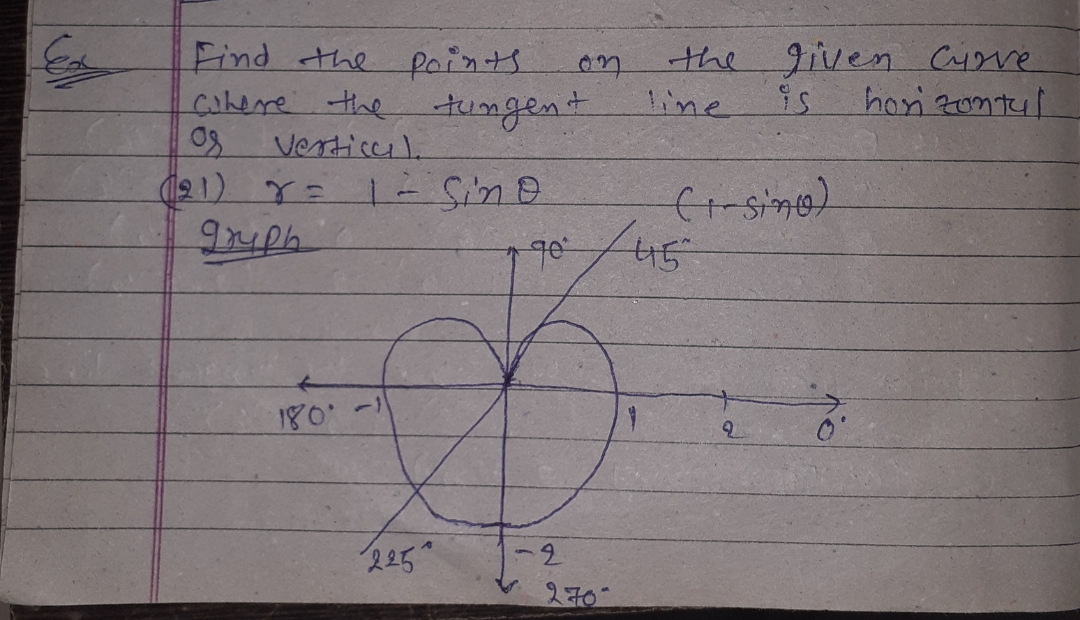 Ex Find the points on the given curve
where the tangent line is horizontal
or vertical.
(21) r = 1 - Sin θ
(1-sinθ)
graph
90°
45°
180° -1
1
2
0°
225°
-2
270°